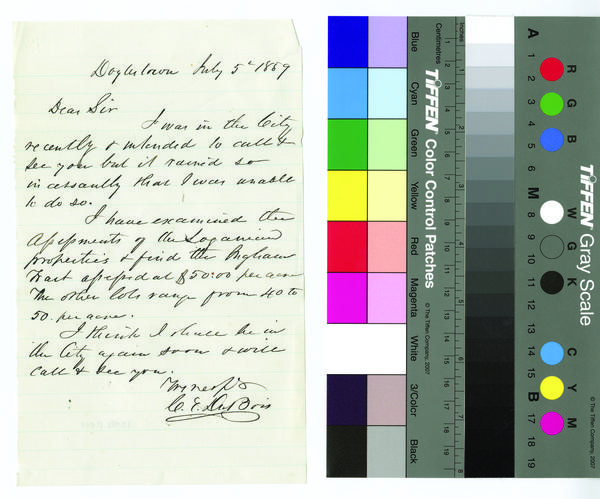 Doylestown July 5th 1859
Dear Sir
I was in the City
recently & intended to call &
see you but it rained so
incessantly that I was unable
to do so.
I have examined the
Assessments of the Loganian
properties & find the Ingham
Tract assessed at $50.00 per acre
The other lots range from 40 to
50. per acre.
I think I shall be in
the City again soon & will
call & see you.
C. E. DuBois
Blue
Cyan
Green
Yellow
Red
Magenta
White
3/Color
Black
Centimetres
Inches
TIFFEN Color Control Patches
© The Tiffen Company, 2007
1 2 3 4 5 6 7 8 9 10 11 12 13 14 15 16 17 18 19
A 1 2 3 4 5 6 M 8 9 10 11 12 13 14 15 B 17 18 19
R G B
W G K
C Y M
TIFFEN Gray Scale
© The Tiffen Company, 2007